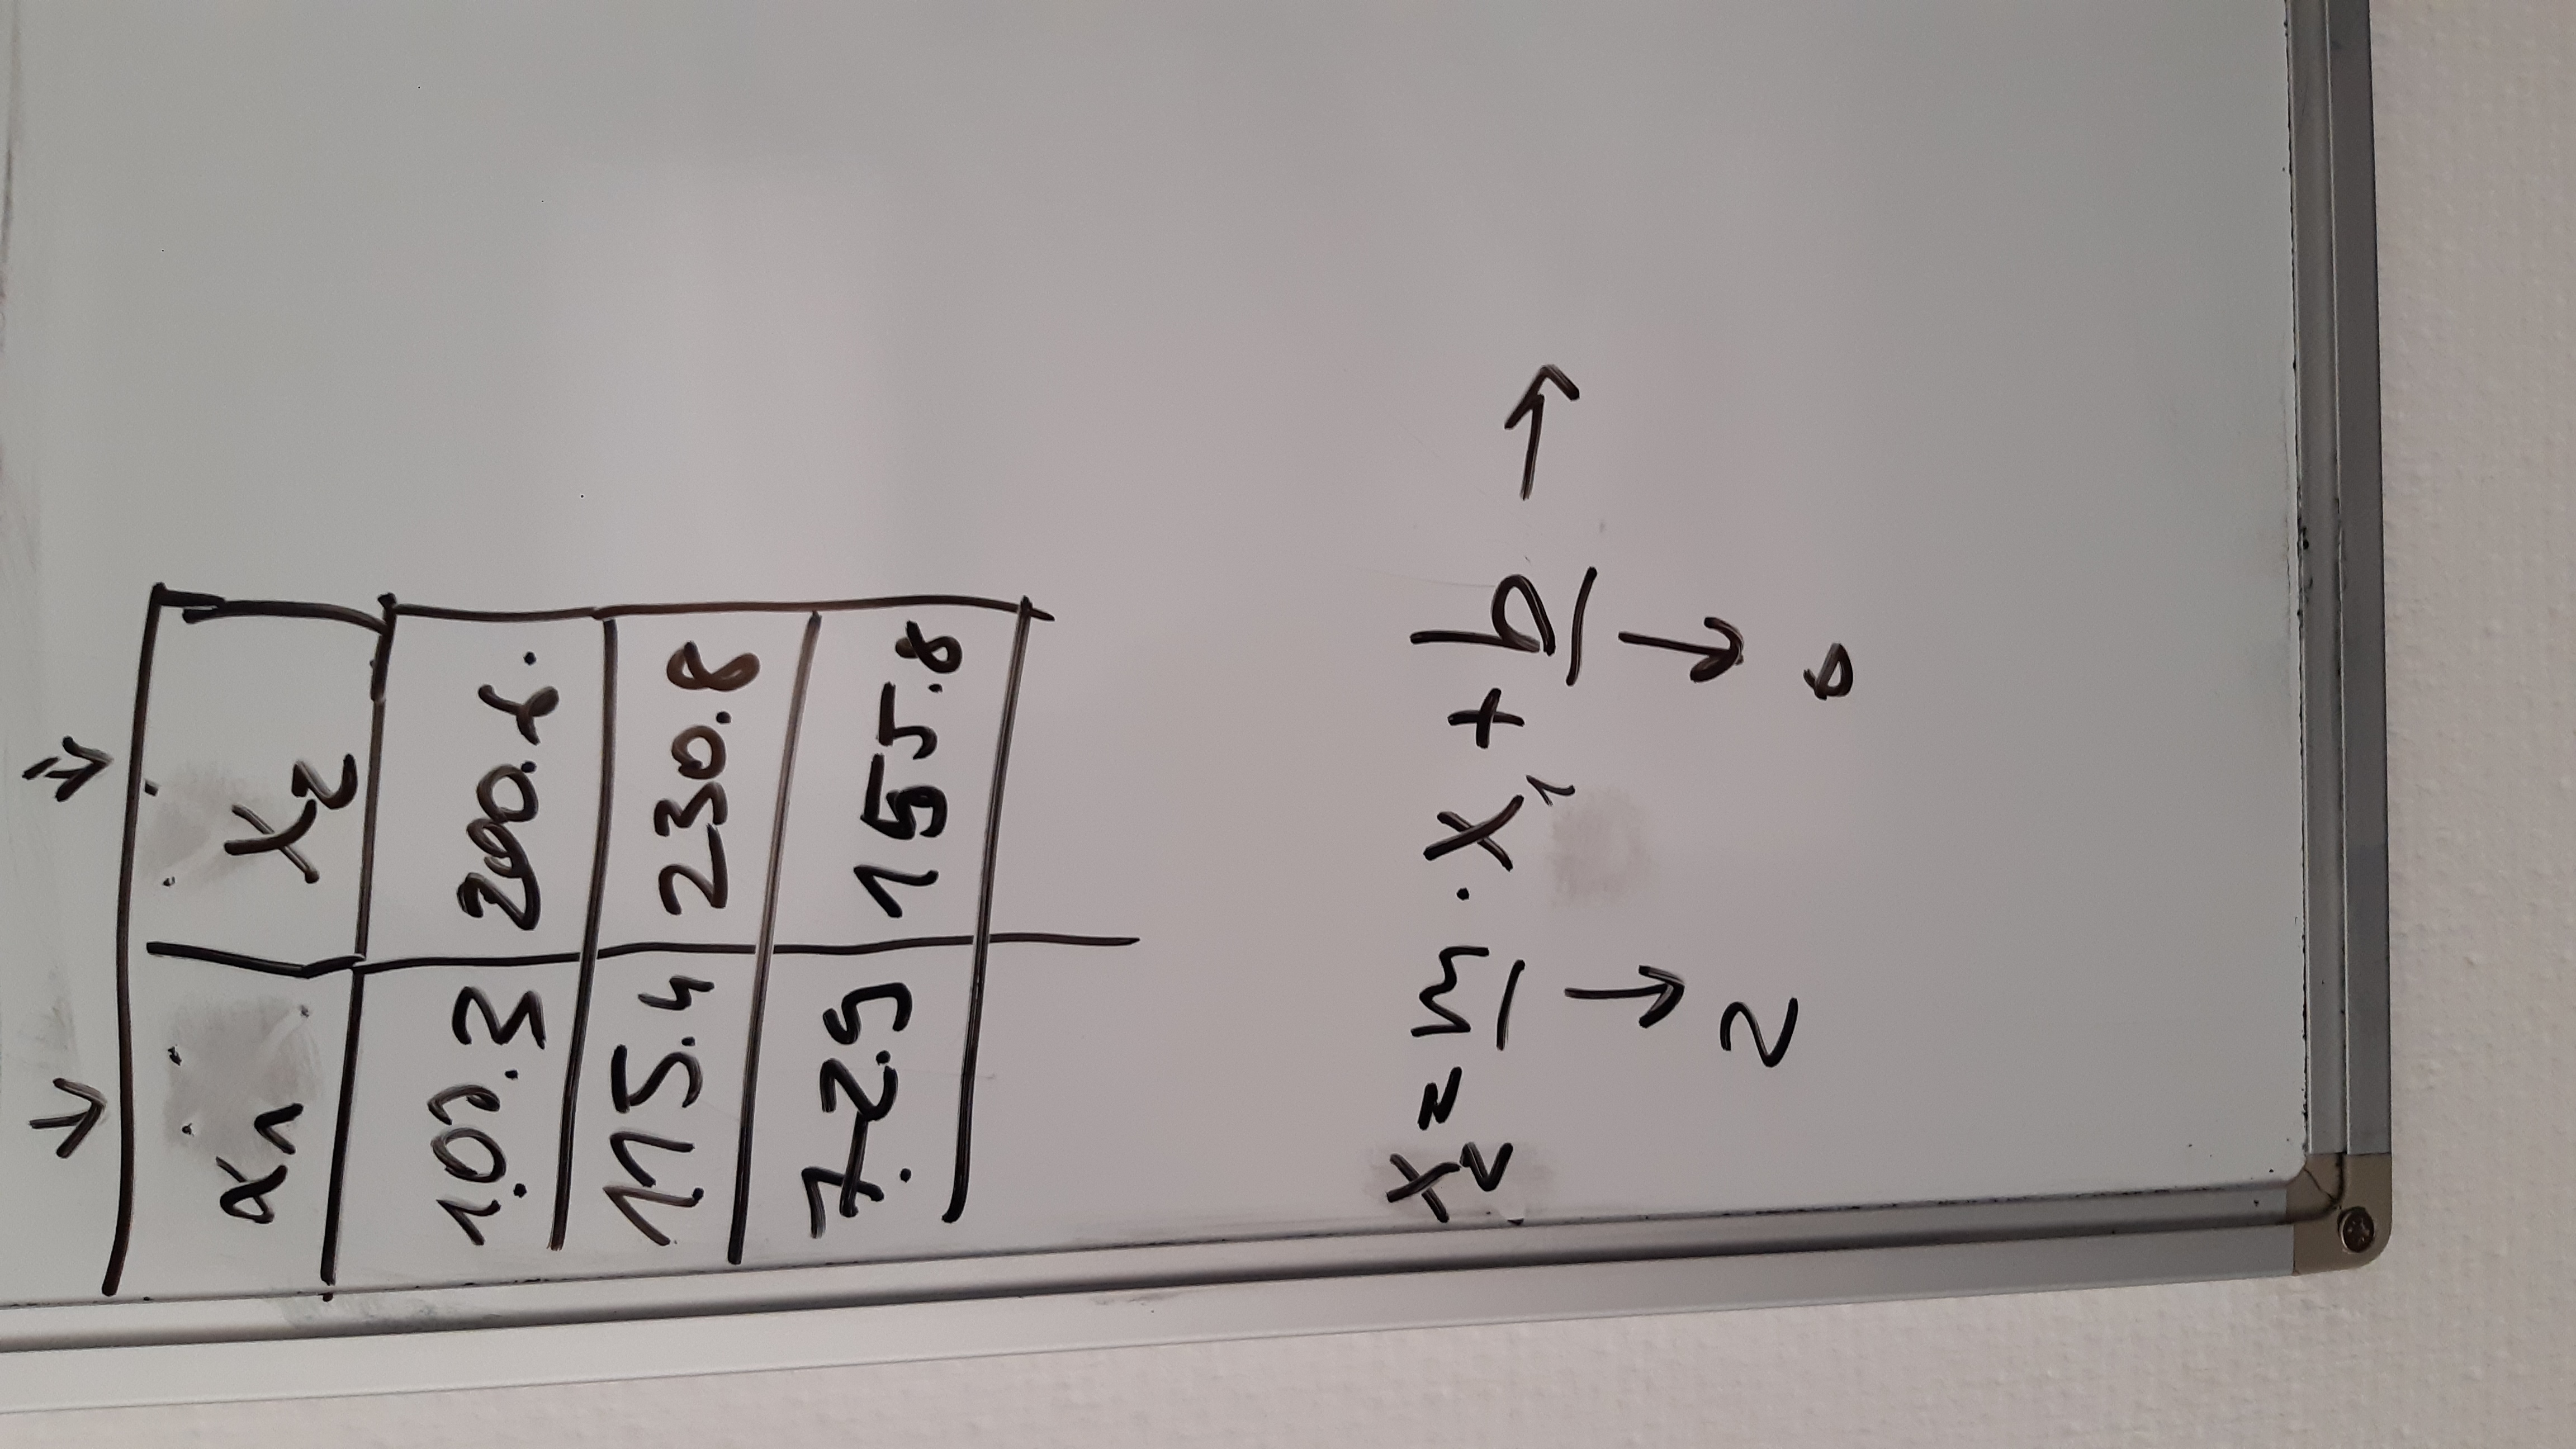 ↓ ↓
x₁ x₂
100.3 200.6.
115.4 230.8
72.9 155.8
x₂ = m · x₁ + b →
↓ ↓
2 0